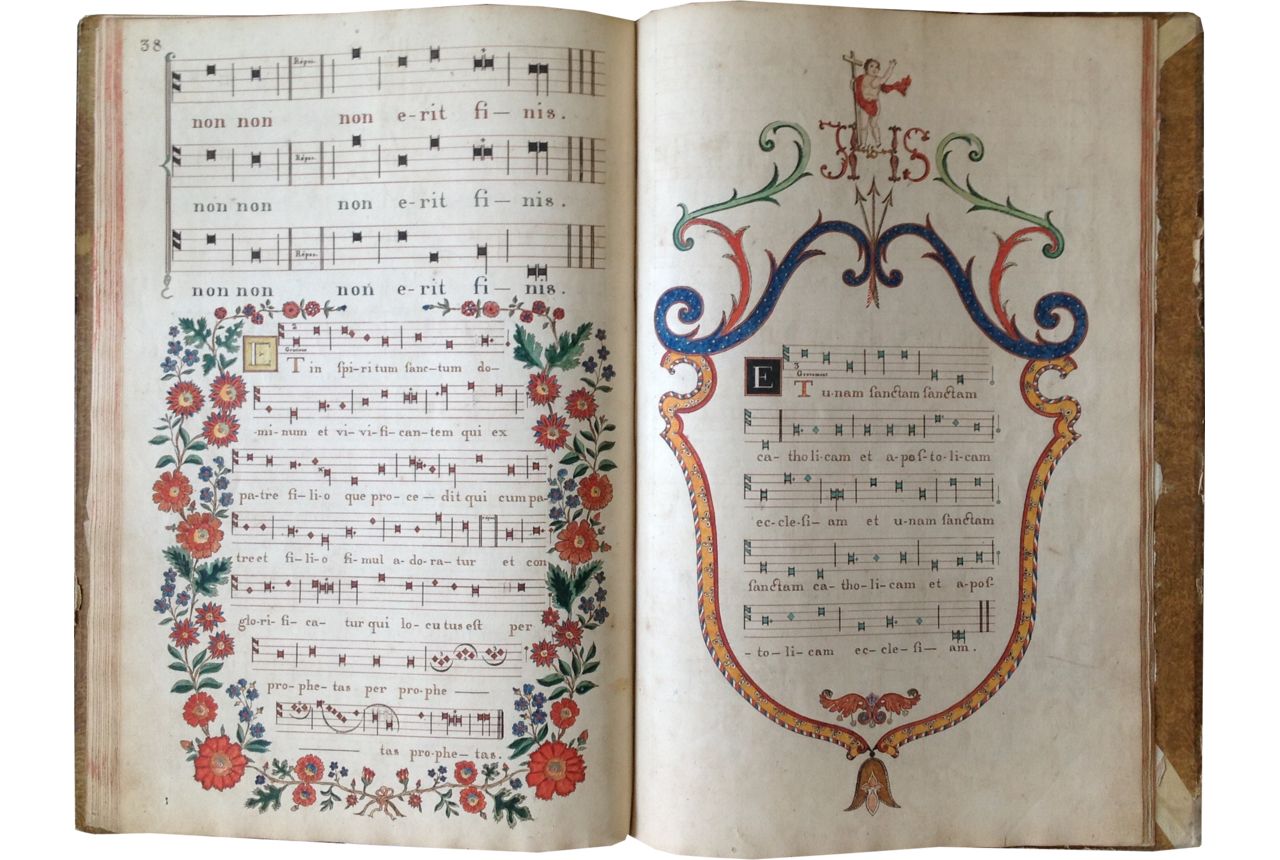 38
Répos.
non non non e-rit fi— nis.
Répos.
non non non e-rit fi— nis.
Répos.
non non non e-rit fi— nis.
2
Gracieux
E T in ſpi-ri tum ſanc-tum do-
-mi-num et vi-vi-fi-can-tem qui ex
pa-tre fi-li-o que pro-ce—dit qui cum pa-
tre et fi-li-o ſi-mul a-do-ra-tur et con
glo-ri-fi-ca-tur qui lo-cu tus eſt per
pro-phe-tas per pro-phe —
— tas pro-phe-tas.
JHS
3
Gravement
E T u-nam ſanctam ſanctam
ca- tho li-cam et a-po ſ-to-li-cam
ec-cle-ſi— am et u-nam ſanctam
ſanctam ca-tho-li-cam et a-poſ-
-to-li-cam ec-cle-ſi— am.